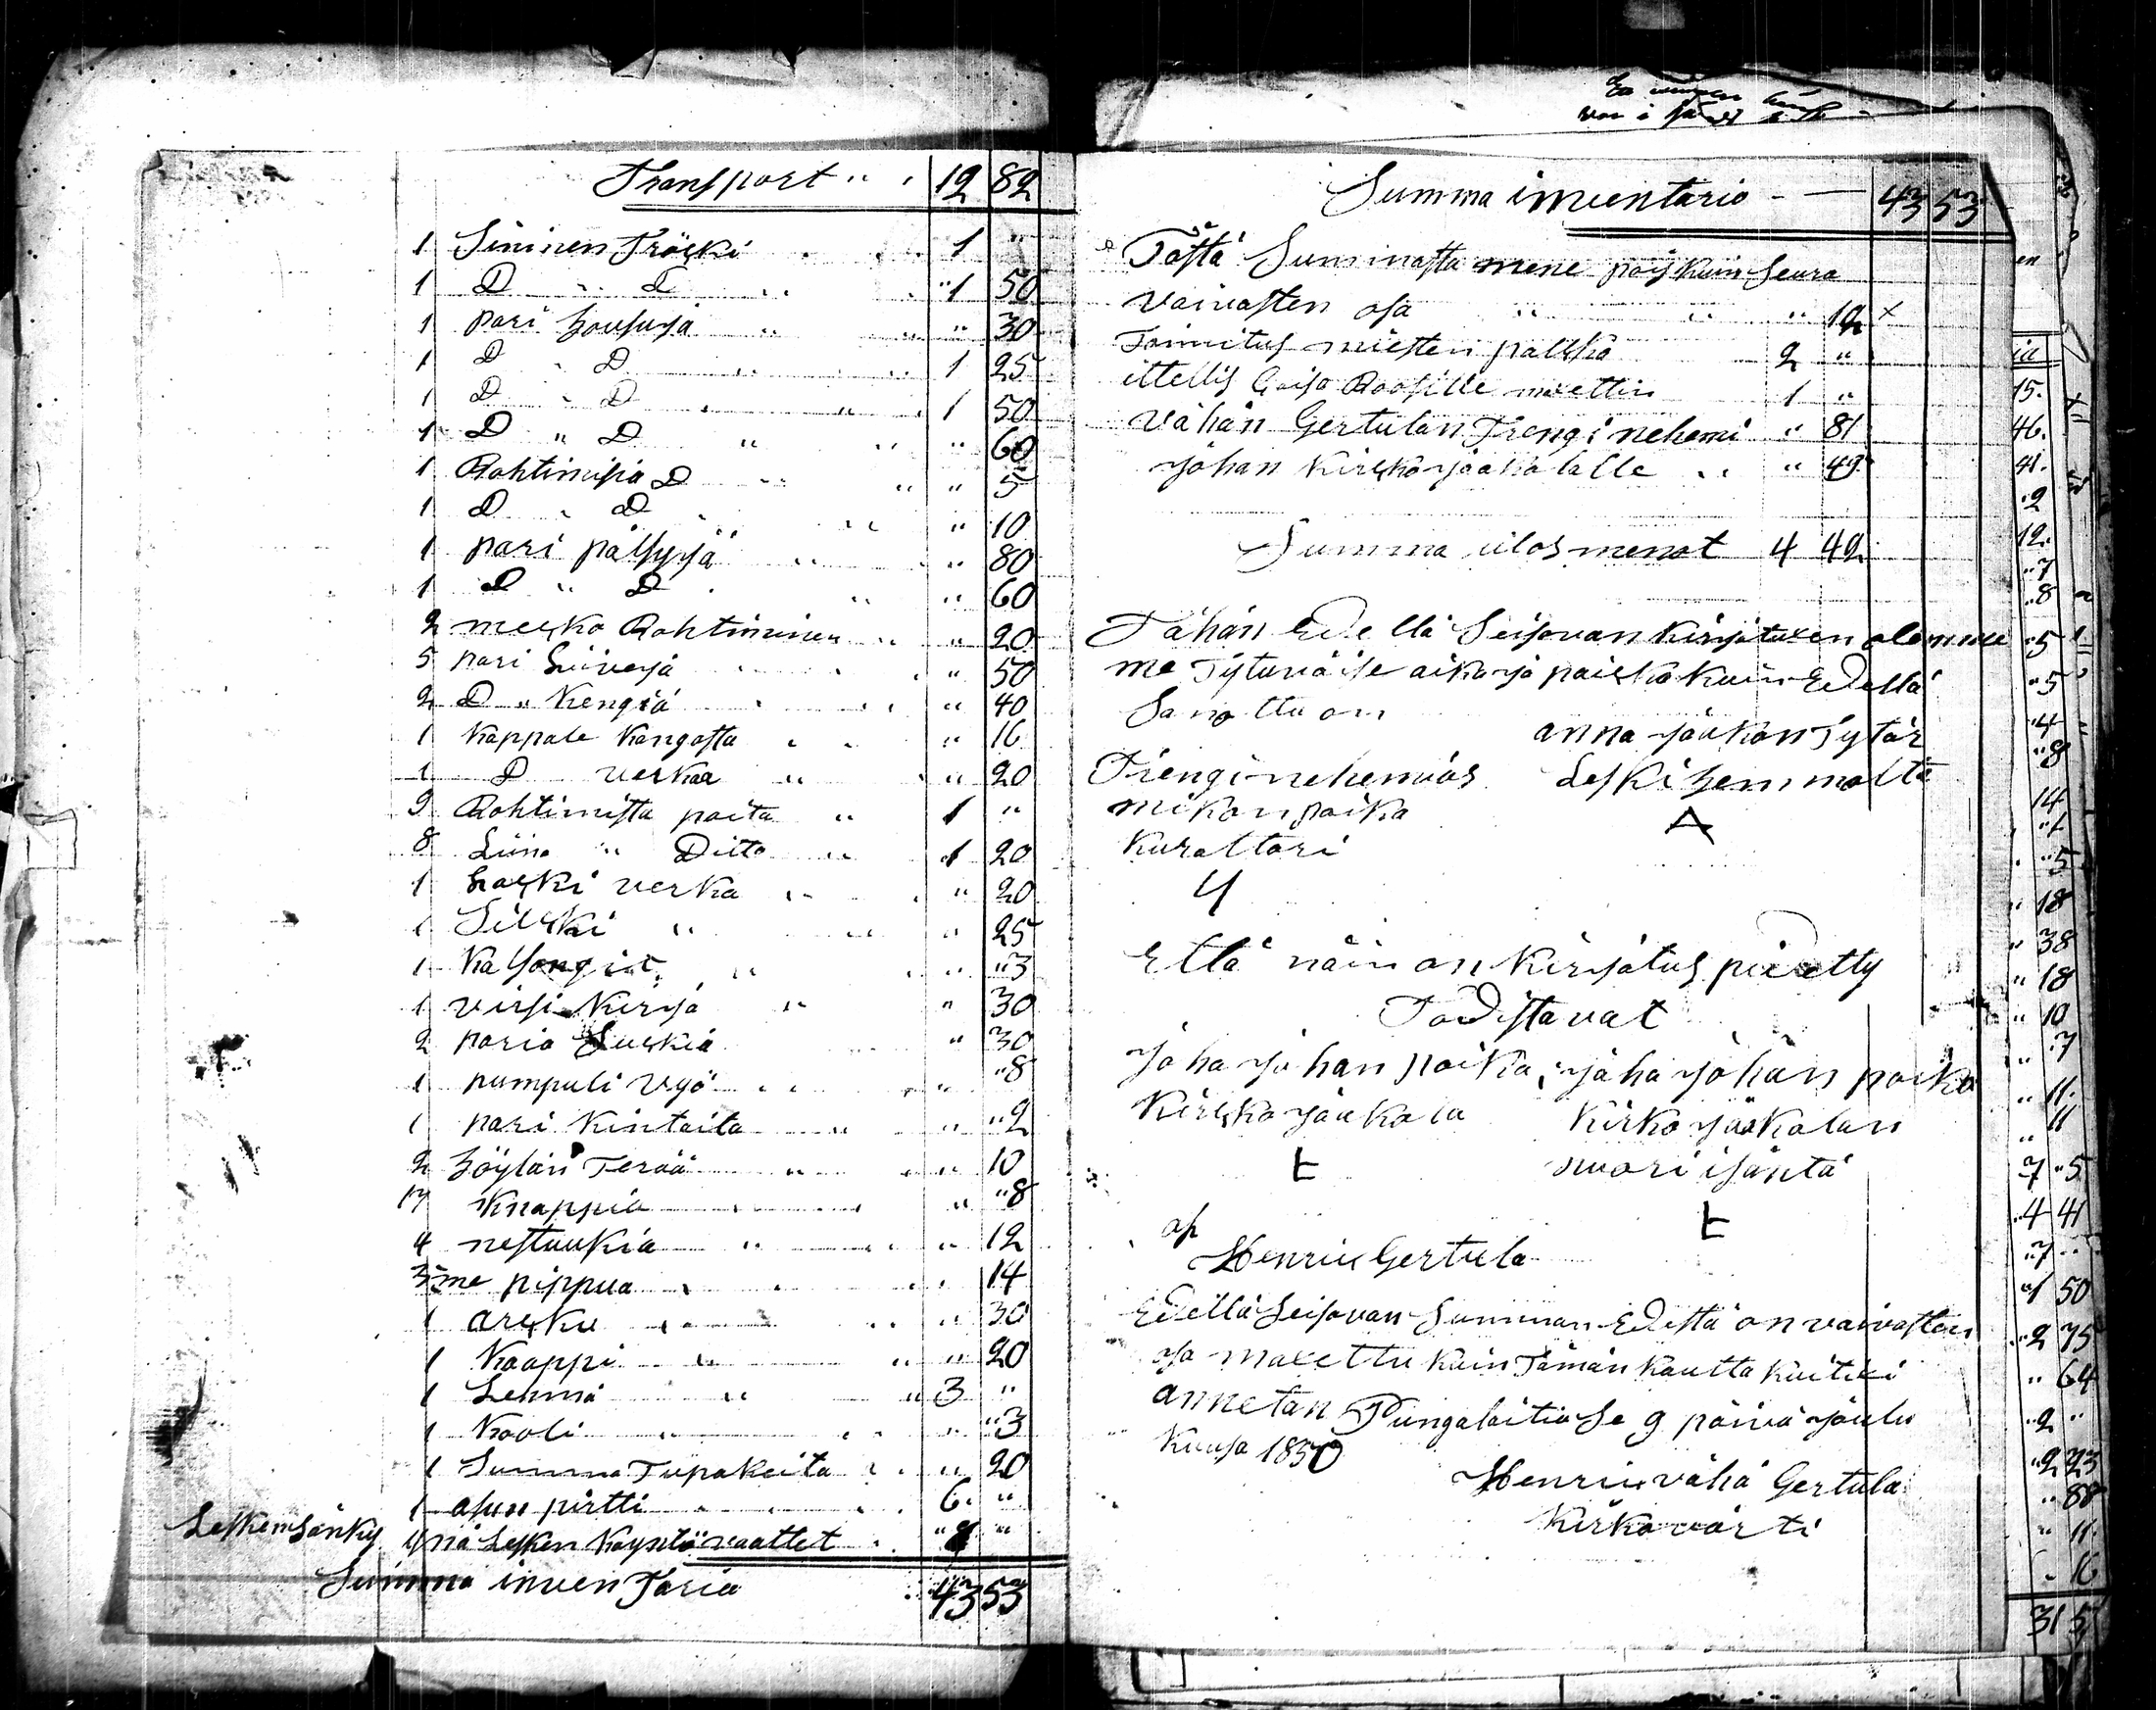 Transport " " 12 82
1 Sininen Tröcki " " 1 "
1 D " D " " 1 50
1 pari housuja " " " 30
1 D " D " " 1 25
1 D " D " " 1 50
1 D " D " " " 60
1 Rohtimisia D " " " 5
1 D " D " " 10
1 pari pälsyjä " " 80
1 D " D " " 60
2 mecko Rohtiminen " " 20
5 pari Liivejä " 50
2 D " Kengiä " 40
1 Kappale Kangasta " " 16
1 D verkaa " " 20
9 Rohtimista paita " 1 "
8 Liina " Ditto " 1 20
1 Hacki verka " " 20
1 Silcki " " " 25
1 Kalsongia " " "3
1 virsi Kirja " " 30
2 paria Suckia " 30
1 pumpuli vyö " " "8
1 pari Kintaita " " "2
2 höylän Terää " " 10
17 Knappia " "8
4 nestuukia " " 12
3me pippua " 14
1 arcku " " 30
1 Kaappi " " 20
1 Lehmä " " 3 "
1 Kooli " " "3
1 Summa Tupakeita " " 20
1 asun pirtti " 6 "
Lesken Sänky ynä Lesken Käyntö vaattet "
Summa invenTaria 43 53
Summa inventario - — 43 53
Tästä Summasta mene pois Kuin Seura
vaivasten osa " " " 12 x
Toimitus miesten palcka 2 "
ittellis Caisa Roosille maxettin 1 "
vähän Gertulan Trengi nehemi " 81
johan Kircko jaakolalle " " 49
Summa ulos menot 4 42
Tähän Edellä Seisovan Kirjatuxen olemme
me Tytyväise aika ja paicka Kuin Edellä
Sanottu on
anna jaakon Tytär
Trengi nehemias Leski hemmolta
mikon poika
Kurattori
Että näin on Kirjatus pidetty
Todistavat
joha johan poika, joha johan poika
Kircko jaakola Kirko jaakolan
nuori isäntä
af
Henric Gertula
Edellä Seisovan Summan Edestä on vaivasten
osa maxettu Kuin Tämän Kautta Kuitixi
annetan Pungalaitiose 9 päivä joulu
Kuusa 1850
Henric vähä Gertula
Kirko värti
15.
46.
41.
"2
12.
"7
"8
"5
"5
"4
"8
14
"5
" 18
" 38
" 18
" 10
" 7
" 11.
" 11
7 "5
"4 41
"7 "
50
"2 75
" 64
"2 "
"2 23
" 88
" 11.
" 16